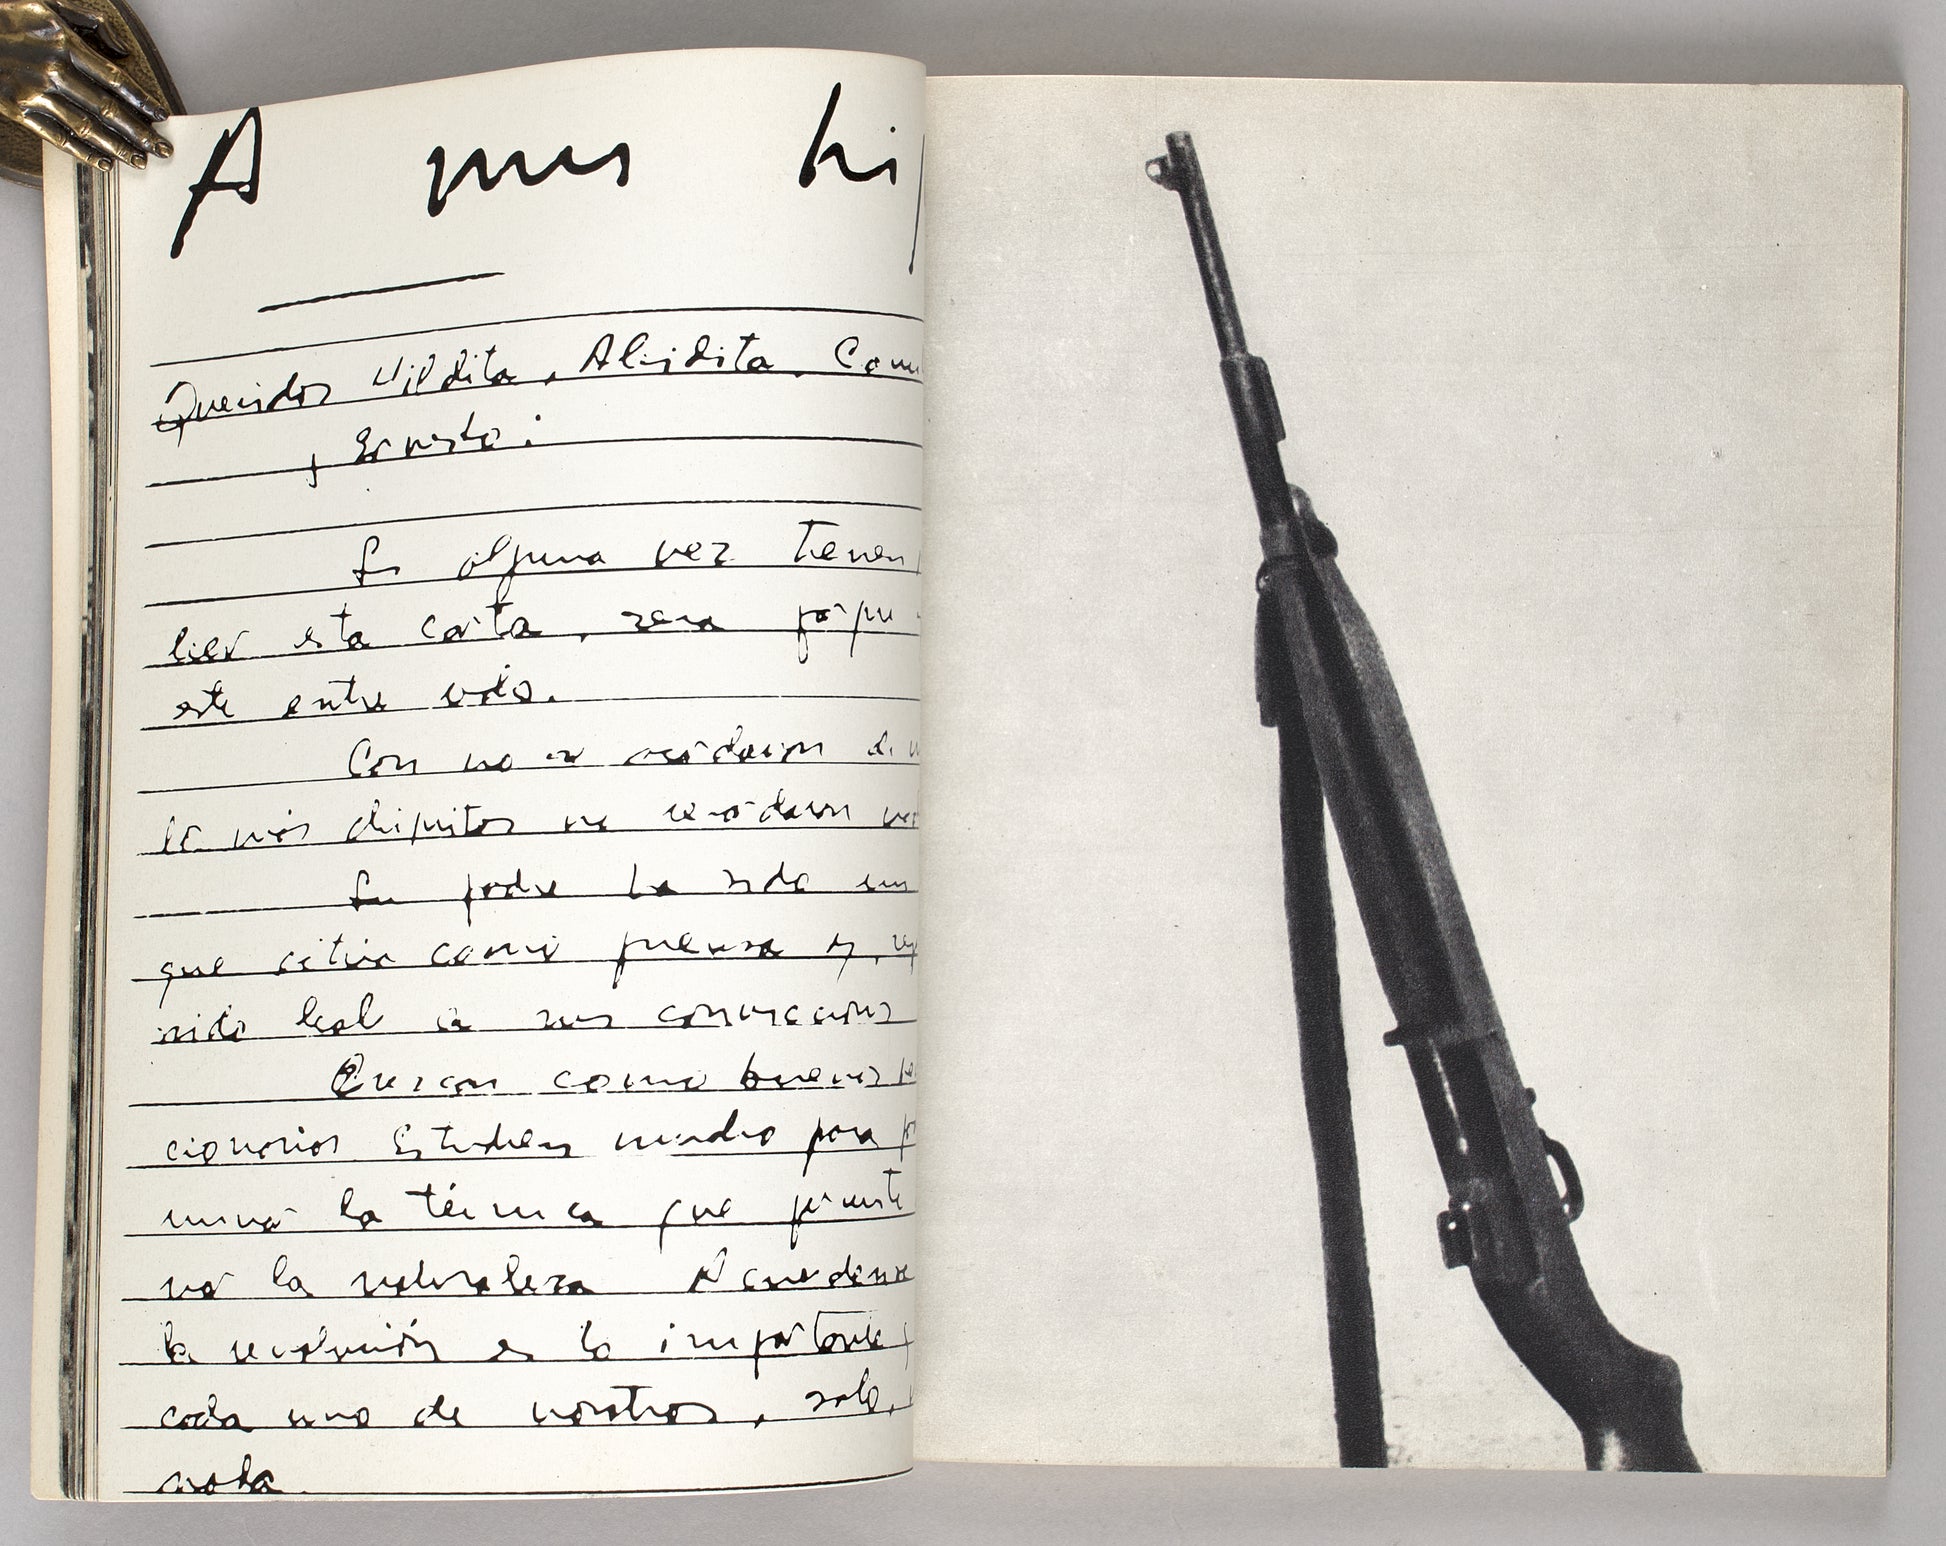 A mis hij
Queridos Hildita, Aleidita, Cami
y Ernesto:
Si alguna vez tienen
leer esta carta, sera porque
este entre uds.
Casi no se acordaran de
los más chiquitos no recordaran
Su padre ha sido un
que actua como piensa y,
sido leal a sus convicciones
Crezcan como buenos
cionarios Estudien mucho para
minar la técnica que permite
nar la naturaleza Acuerdense
la revolución es lo importante
cada uno de nosotros, solo,